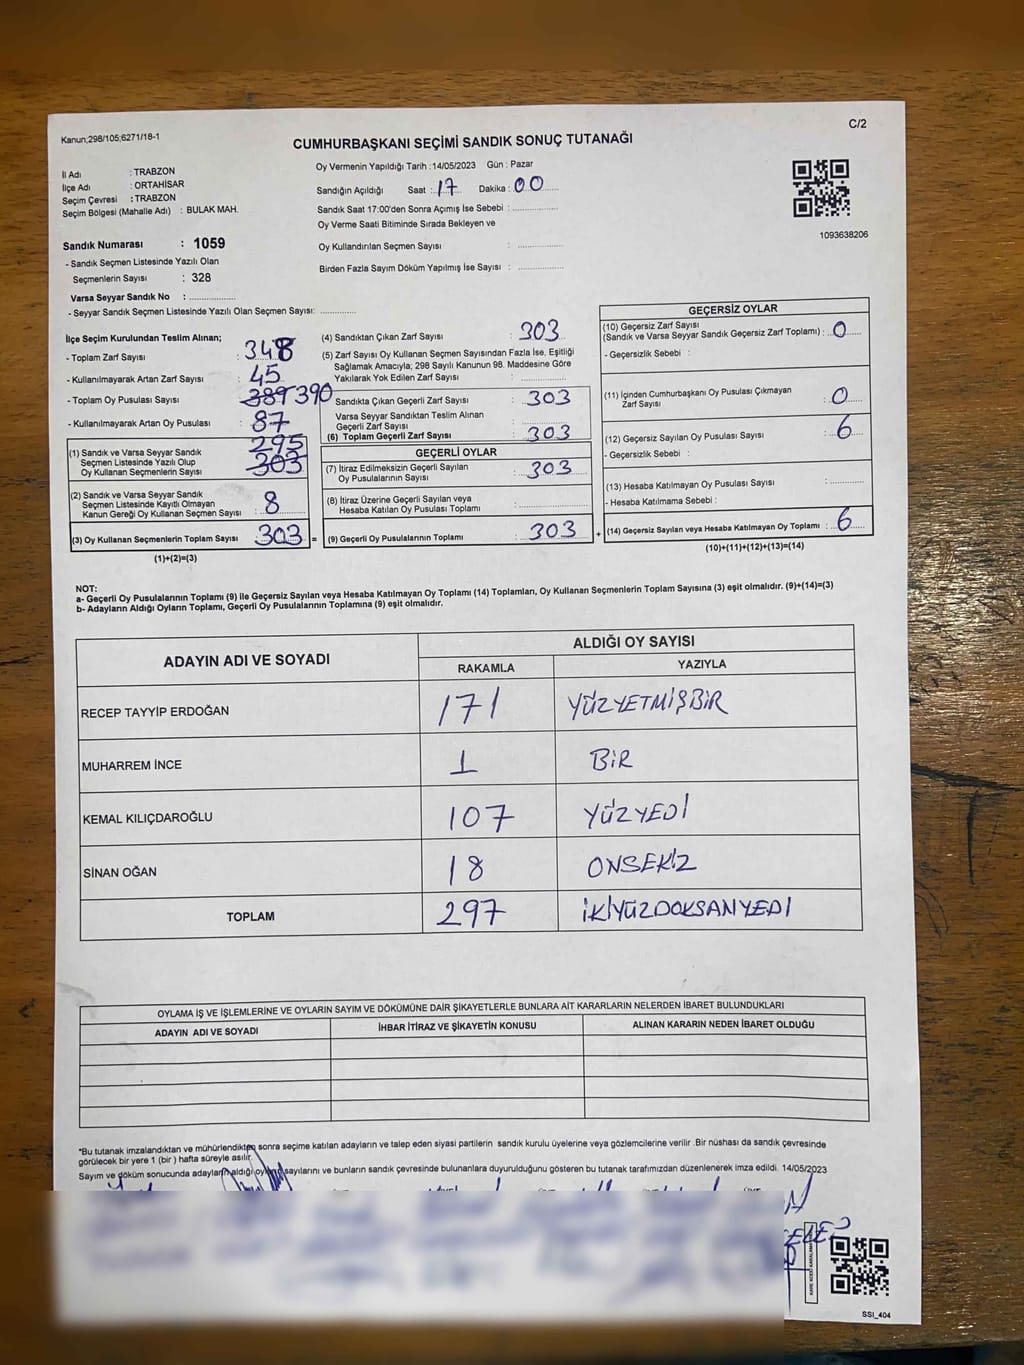 Kanun;298/105;6271/18-1
C/2
CUMHURBAŞKANI SEÇİMİ SANDIK SONUÇ TUTANAĞI
İl Adı : TRABZON
İlçe Adı : ORTAHİSAR
Seçim Çevresi : TRABZON
Seçim Bölgesi (Mahalle Adı) : BULAK MAH.
Oy Vermenin Yapıldığı Tarih :14/05/2023 Gün : Pazar
Sandığın Açıldığı Saat : 17 Dakika : 00
Sandık Saat 17:00'den Sonra Açımış İse Sebebi :
Oy Verme Saati Bitiminde Sırada Bekleyen ve
Oy Kullandırılan Seçmen Sayısı :
Birden Fazla Sayım Döküm Yapılmış İse Sayısı :
1093638206
Sandık Numarası : 1059
- Sandık Seçmen Listesinde Yazılı Olan
Seçmenlerin Sayısı : 328
Varsa Seyyar Sandık No :
- Seyyar Sandık Seçmen Listesinde Yazılı Olan Seçmen Sayısı:
İlçe Seçim Kurulundan Teslim Alınan;
- Toplam Zarf Sayısı : 348
- Kullanılmayarak Artan Zarf Sayısı : 45
- Toplam Oy Pusulası Sayısı : 389 390
- Kullanılmayarak Artan Oy Pusulası : 87
295
(1) Sandık ve Varsa Seyyar Sandık
Seçmen Listesinde Yazılı Olup
Oy Kullanan Seçmenlerin Sayısı : 303
(2) Sandık ve Varsa Seyyar Sandık
Seçmen Listesinde Kayıtlı Olmayan
Kanun Gereği Oy Kullanan Seçmen Sayısı : 8
(3) Oy Kullanan Seçmenlerin Toplam Sayısı : 303 =
(1)+(2)=(3)
(4) Sandıktan Çıkan Zarf Sayısı : 303
(5) Zarf Sayısı Oy Kullanan Seçmen Sayısından Fazla İse, Eşitliği
Sağlamak Amacıyla; 298 Sayılı Kanunun 98. Maddesine Göre
Yakılarak Yok Edilen Zarf Sayısı :
Sandıkta Çıkan Geçerli Zarf Sayısı : 303
Varsa Seyyar Sandıktan Teslim Alınan
Geçerli Zarf Sayısı :
(6) Toplam Geçerli Zarf Sayısı : 303
GEÇERLİ OYLAR
(7) İtiraz Edilmeksizin Geçerli Sayılan
Oy Pusulalarının Sayısı : 303
(8) İtiraz Üzerine Geçerli Sayılan veya
Hesaba Katılan Oy Pusulası Toplamı :
(9) Geçerli Oy Pusulalarının Toplamı : 303 +
GEÇERSİZ OYLAR
(10) Geçersiz Zarf Sayısı
(Sandık ve Varsa Seyyar Sandık Geçersiz Zarf Toplamı) : 0
- Geçersizlik Sebebi :
(11) İçinden Cumhurbaşkanı Oy Pusulası Çıkmayan
Zarf Sayısı : 0
(12) Geçersiz Sayılan Oy Pusulası Sayısı : 6
- Geçersizlik Sebebi :
(13) Hesaba Katılmayan Oy Pusulası Sayısı :
- Hesaba Katılmama Sebebi :
(14) Geçersiz Sayılan veya Hesaba Katılmayan Oy Toplamı : 6
(10)+(11)+(12)+(13)=(14)
NOT:
a- Geçerli Oy Pusulalarının Toplamı (9) ile Geçersiz Sayılan veya Hesaba Katılmayan Oy Toplamı (14) Toplamları, Oy Kullanan Seçmenlerin Toplam Sayısına (3) eşit olmalıdır. (9)+(14)=(3)
b- Adayların Aldığı Oyların Toplamı, Geçerli Oy Pusulalarının Toplamına (9) eşit olmalıdır.
ADAYIN ADI VE SOYADI
ALDIĞI OY SAYISI
RAKAMLA YAZIYLA
RECEP TAYYİP ERDOĞAN 171 YÜZYETMİŞBİR
MUHARREM İNCE 1 BİR
KEMAL KILIÇDAROĞLU 107 YÜZYEDİ
SİNAN OĞAN 18 ONSEKİZ
TOPLAM 297 İKİYÜZDOKSANYEDİ
OYLAMA İŞ VE İŞLEMLERİNE VE OYLARIN SAYIM VE DÖKÜMÜNE DAİR ŞİKAYETLERLE BUNLARA AİT KARARLARIN NELERDEN İBARET BULUNDUKLARI
ADAYIN ADI VE SOYADI İHBAR İTİRAZ VE ŞİKAYETİN KONUSU ALINAN KARARIN NEDEN İBARET OLDUĞU
*Bu tutanak imzalandıktan ve mühürlendikten sonra seçime katılan adayların ve talep eden siyasi partilerin sandık kurulu üyelerine veya gözlemcilerine verilir .Bir nüshası da sandık çevresinde
görülecek bir yere 1 (bir ) hafta süreyle asılır.
Sayım ve döküm sonucunda adayların aldığı oy sayılarını ve bunların sandık çevresinde bulunanlara duyurulduğunu gösteren bu tutanak tarafımızdan düzenlenerek imza edildi. 14/05/2023
SSI_404